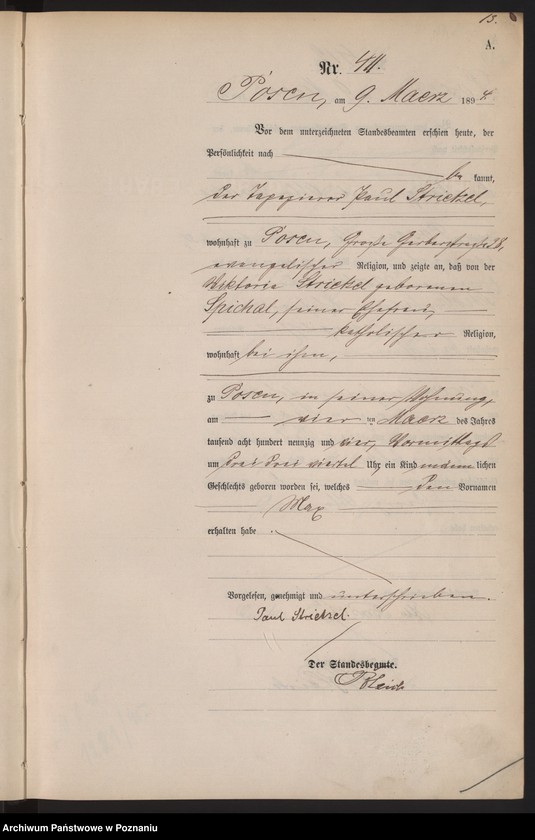 13.
A.
Nr. 411.
Posen, am 9. Maerz 1894
Vor dem unterzeichneten Standesbeamten erschien heute, der
Persönlichkeit nach
be kannt,
der Tapezierer Paul Strickel,
wohnhaft zu Posen, Große Gerberstraße 28,
evangelischer Religion, und zeigte an, daß von der
Viktoria Strickel geborenen
Spichal, seiner Ehefrau,
katholischer Religion,
wohnhaft bei ihm,
zu Posen, in seiner Wohnung,
am vier ten Maerz des Jahres
tausend acht hundert neunzig und vier, Vormittags
um drei drei viertel Uhr ein Kind maenn lichen
Geschlechts geboren worden sei, welches den Vornamen
Max
erhalten habe.
Vorgelesen, genehmigt und unterschrieben.
Paul Strickel.
Der Standesbeamte.
Archiwum Państwowe w Poznaniu